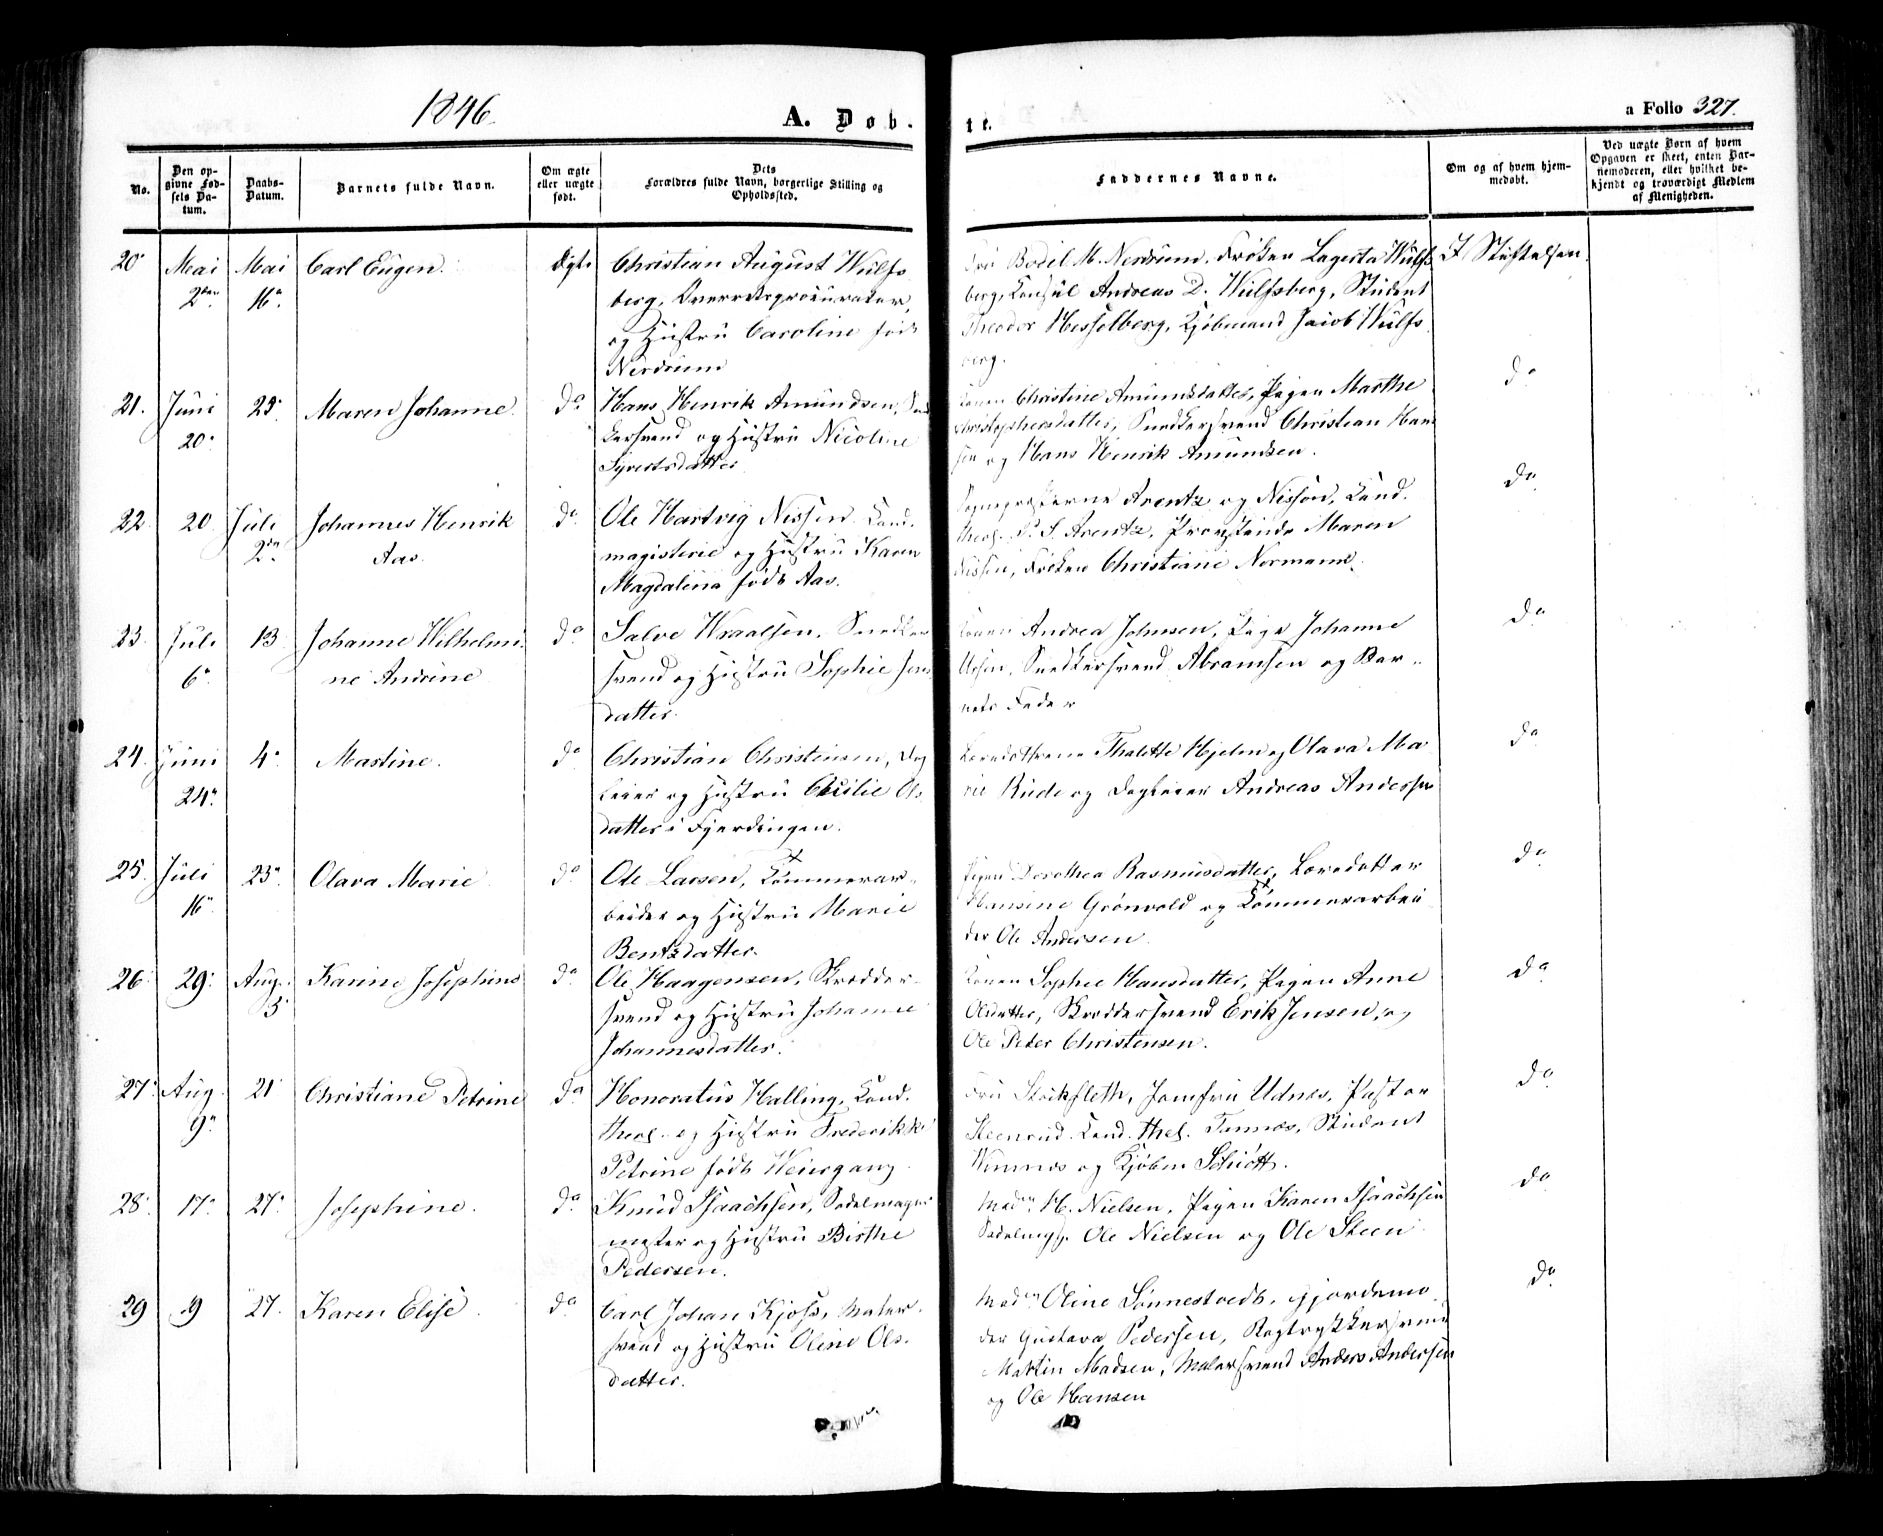 1846.
A. Døb-
te.
a Folio 327.
No.
Den opgivne Fødsels Datum.
Daabs-Datum.
Barnets fulde Navn.
Om ægte eller uægte født.
Dets Forældres fulde Navn, borgerlige Stilling og Opholdssted.
Faddernes Navne.
Om og af hvem hjemmedøbt.
Ved uægte Børn af hvem Opgaven er skeet, enten Barnemoderen, eller hvilket bekjendt og troværdigt Medlem af Menigheden.
20 Mai Mai Carl Eugen. Ægte Christian August Wulfs
2den 16de berg, Overretsprocurator,
og Hustru Caroline født
Nerdrum
Fru Bodil M. Nerdrum, Frøken Lagerta Wulfs I Stiftelsen.
berg, Consul Andreas D. Wulfsberg, Student
Theodor Hesselberg, Kjøbmand Jacob Wulfs
berg.
21. Juni 25 Maren Johanne. do Hans Henrik Amundsen, Sned
20 kersvend og Hustru Nicoline
Syvertsdatter
Konen Christine Amundsdatter, Pigen Marthe do
Christophersdatter, Snedkersvend Christian Han
sen og Hans Henrik Amundsen.
22 20 Juli Johannes Henrik do Ole Hartvig Nissen Cand.
2den Aas. magisterie og Hustru Karen
Magdalena født Aas.
Sognepræsterne Arentz og Nissen, Cand. do
theol. F. S. Arentz, Provstinde Maren
Nissen, Frøken Christiane Normann.
23. Juli 13 Johanne Wilhelmi do Salve Wraalsen, Snedker
6 ne Andrine svend og Hustru Sophie Jens
datter.
Konen Andrea Johnsen, Pige Johanne do
Snedkersvend Abramsen og Bar-
nets Fader
24. Juni 4 Mastine. do Christian Christensen, Dag
24 leier og Hustru Cecilie Ols
datter i Fjerdingen.
Læredøttrene Thalette Hjelm og Olava Ma do
rie Rude og Dagleier Andreas Andersen
25. Juli 23 Olava Marie do Ole Larsen, Tømmerar-
16 beider og Hustru Marie
Bentsdatter.
Pigen Dorothea Rasmusdatter, Læredatter do
Hansine Grønvold og Tømmerarbei
der Ole Andersen.
26 29 Aug. Karine Josephine do Ole Haagensen, Skrædder-
5 svend og Hustru Johanne
Johannesdatter.
Konen Sophie Hansdatter, Pigen Anne do
Olsdatter, Skræddersvend Erik Jensen, og
Ole Peder Christensen.
27 Aug. 21 Christiane Petrine do Honoratus Halling, Cand.
9 theol. og Hustru Frederikke
Petrine født Weiergang.
Fru Stockfleth, Jomfru Udnæs, Pastor do
Steenrud. Cand. thel. Student
og Kjøbm Schiøtt.
28 17 27 Josephine. do Knud Isaachsen, Sadelmager
mester og Hustru Birthe
Pedersen.
Madm H. Nielsen, Pigen Karen Isaachsen do
Sadelmgr. Ole Nielsen og Ole Steen
29 9 27. Karen Elise. do Carl Johan Kjøss, Maler-
svend og Hustru Oline Ols-
datter.
Madm Oline Sønnestvedt, Gjordemo do
der Gustava Pedersen, Bogtrykkersvend
Martin Madsen, Malersvend Anders Andersen
og Ole Hansen